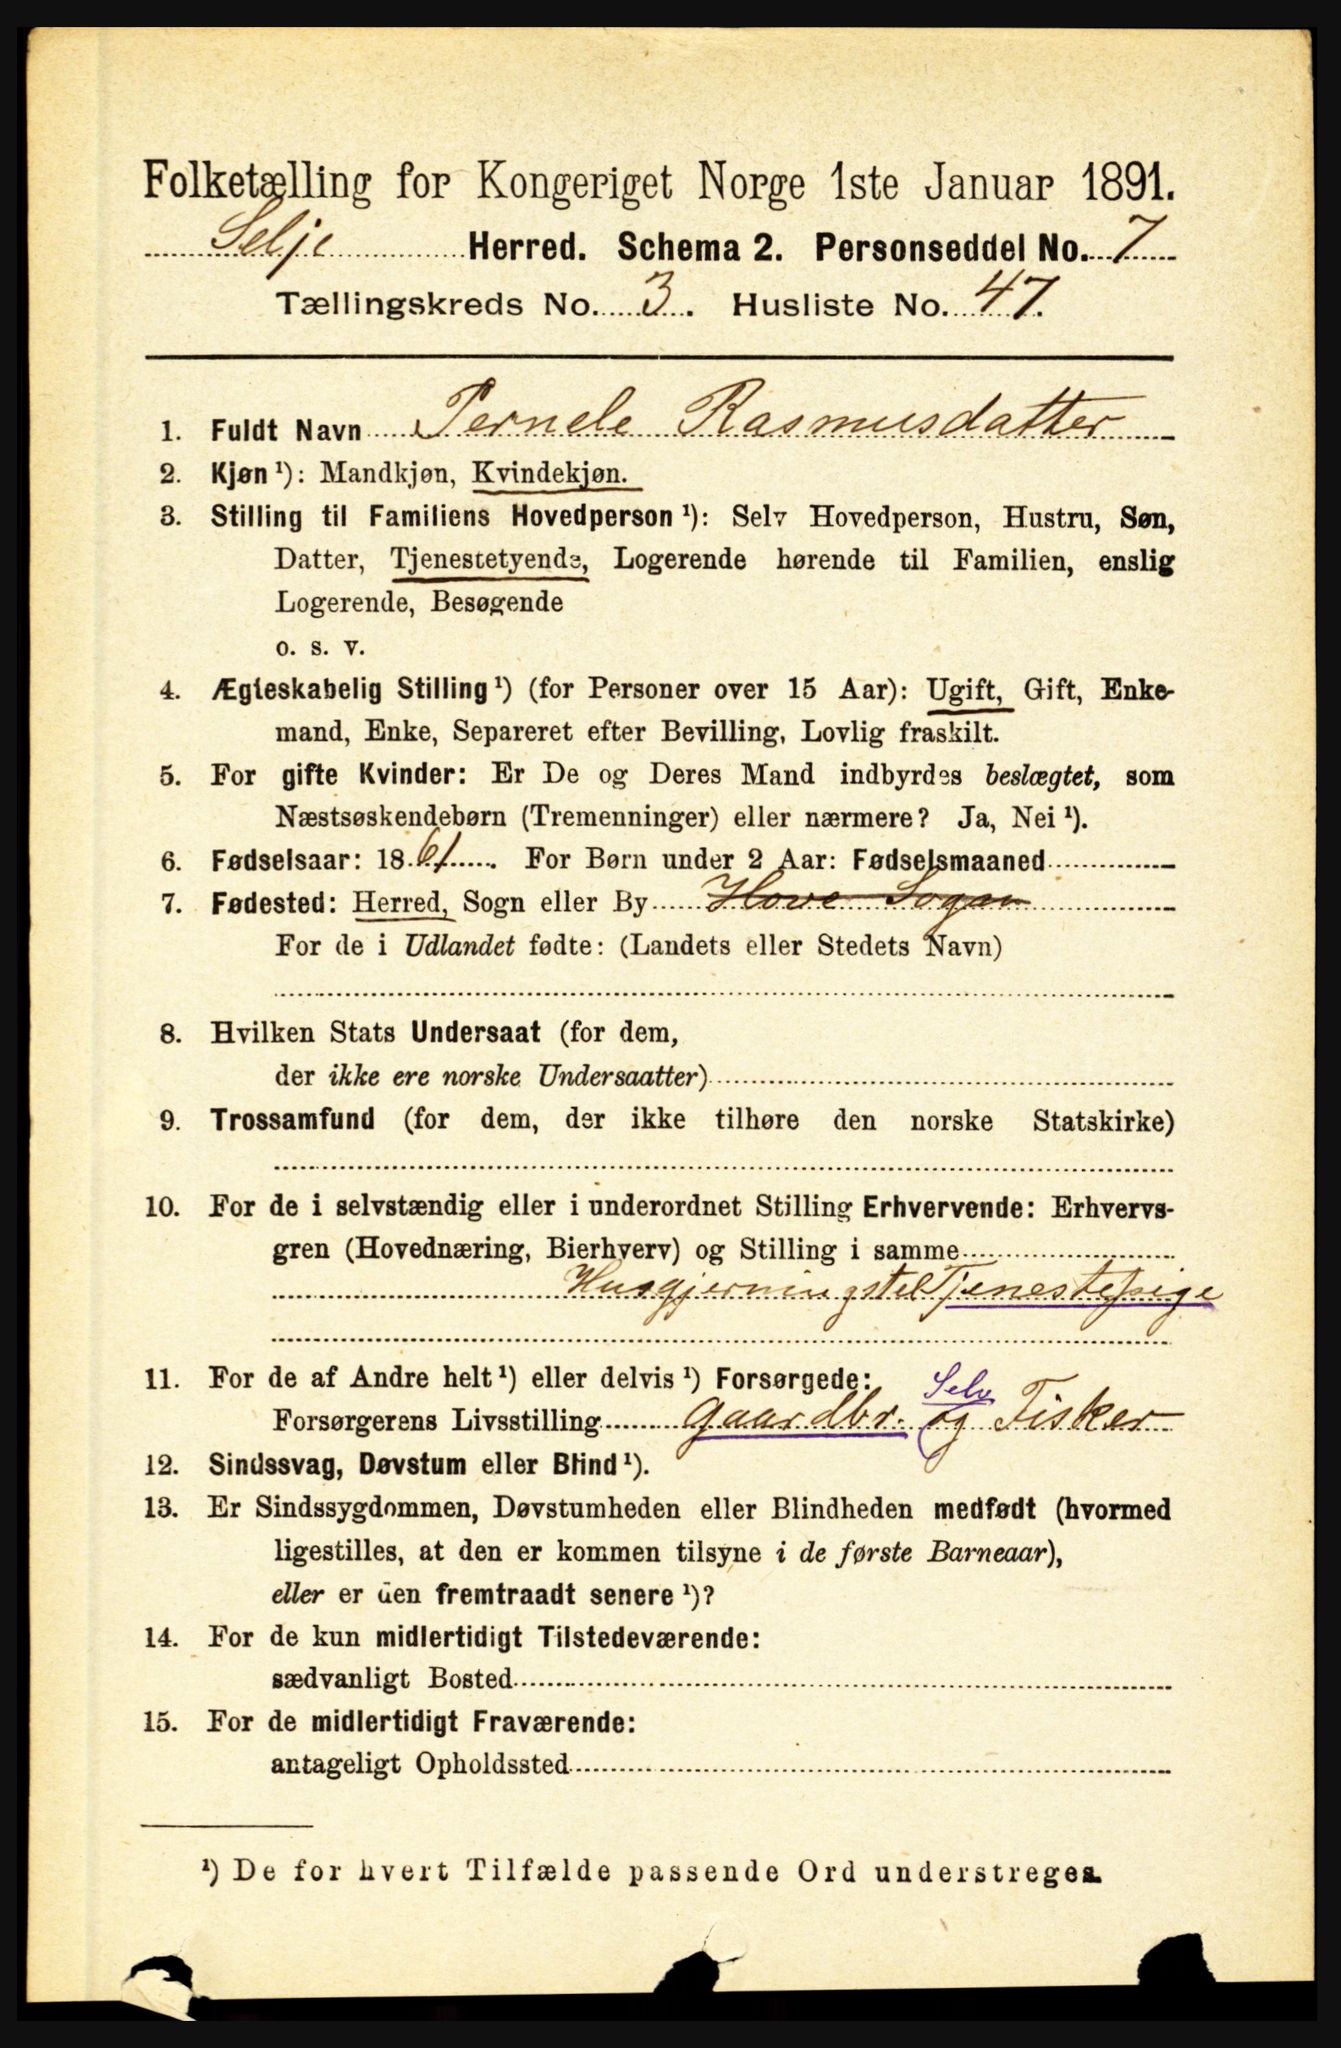 Folketælling for Kongeriget Norge 1ste Januar 1891.
Selje Herred. Schema 2. Personseddel No. 7
Tællingskreds No. 3. Husliste No. 47.
1. Fuldt Navn Pernele Rasmusdatter
2. Kjøn ¹): Mandkjøn, Kvindekjøn.
3. Stilling til Familiens Hovedperson ¹): Selv Hovedperson, Hustru, Søn,
Datter, Tjenestetyende, Logerende hørende til Familien, enslig
Logerende, Besøgende
o. s. v.
4. Ægteskabelig Stilling ¹) (for Personer over 15 Aar): Ugift, Gift, Enke-
mand, Enke, Separeret efter Bevilling, Lovlig fraskilt.
5. For gifte Kvinder: Er De og Deres Mand indbyrdes beslægtet, som
Næstsøskendebørn (Tremenninger) eller nærmere? Ja, Nei ¹).
6. Fødselsaar: 1861. For Børn under 2 Aar: Fødselsmaaned
7. Fødested: Herred, Sogn eller By Hove Sogan
For de i Udlandet fødte: (Landets eller Stedets Navn)
8. Hvilken Stats Undersaat (for dem,
der ikke ere norske Undersaatter)
9. Trossamfund (for dem, der ikke tilhøre den norske Statskirke)
10. For de i selvstændig eller i underordnet Stilling Erhvervende: Erhvervs-
gren (Hovednæring, Bierhverv) og Stilling i samme
Husgjerning Tjenestepige
11. For de af Andre helt ¹) eller delvis ¹) Forsørgede:
Selv
Forsørgerens Livsstilling Gaardbr. og Fisker
12. Sindssvag, Døvstum eller Blind ¹).
13. Er Sindssygdommen, Døvstumheden eller Blindheden medfødt (hvormed
ligestilles, at den er kommen tilsyne i de første Barneaar),
eller er den fremtraadt senere ¹)?
14. For de kun midlertidigt Tilstedeværende:
sædvanligt Bosted
15. For de midlertidigt Fraværende:
antageligt Opholdssted
¹) De for hvert Tilfælde passende Ord understreges.